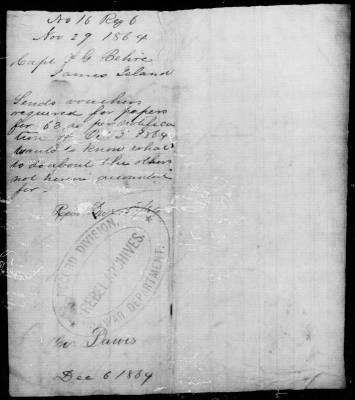 No 16 Reg 6
Nov 29 1864
Capt F G Behre
James Island
Sends vouchers
required for papers
for 63 as per notifica
tion of Oct 3 1864
would to know what
to do about the others
not herein accounted
for.
SECOND DIVISION,
REBEL ARCHIVES,
WAR DEPARTMENT.
Dec 6 1864